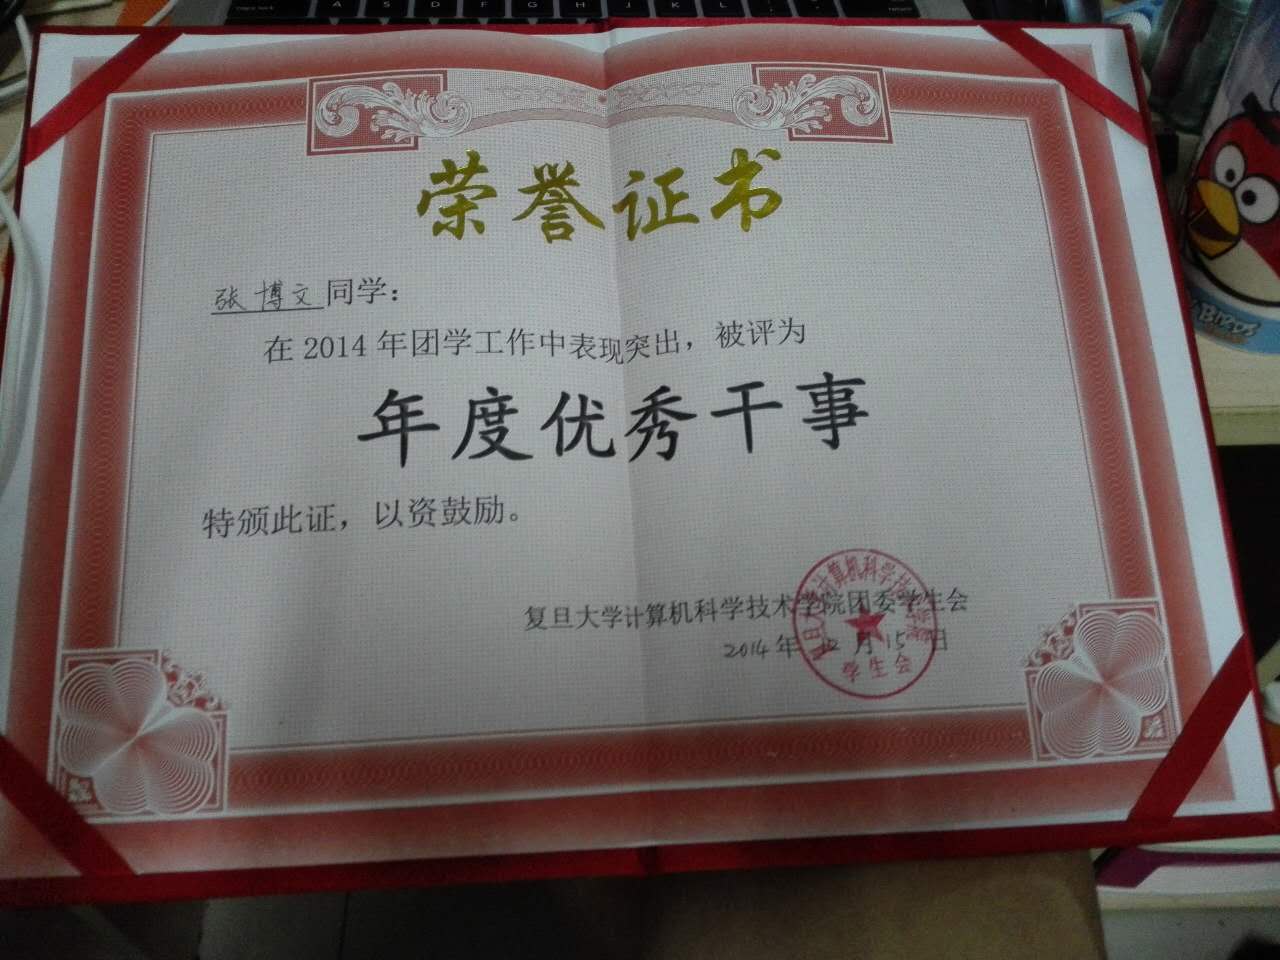 荣誉证书
张博文同学：
在2014年团学工作中表现突出，被评为
年度优秀干事
特颁此证，以资鼓励。
复旦大学计算机科学技术学院团委学生会
2014年12月15日
复旦大学计算机科学技术学院
学生会